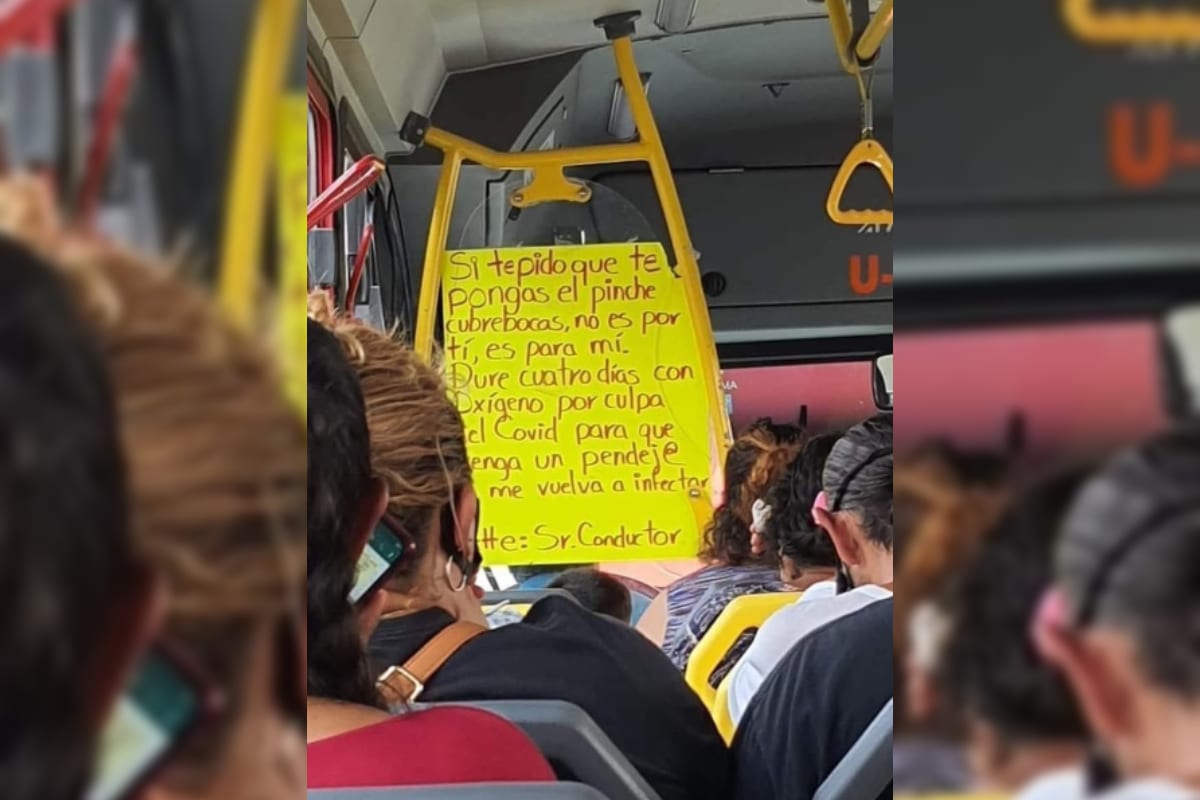 Si te pido que te
pongas el pinche
cubrebocas, no es por
tí, es para mí.
Dure cuatro días con
Oxígeno por culpa
el Covid para que
enga un pendej@
me vuelva a infectar
tte: Sr. Conductor
U-
MA
U-